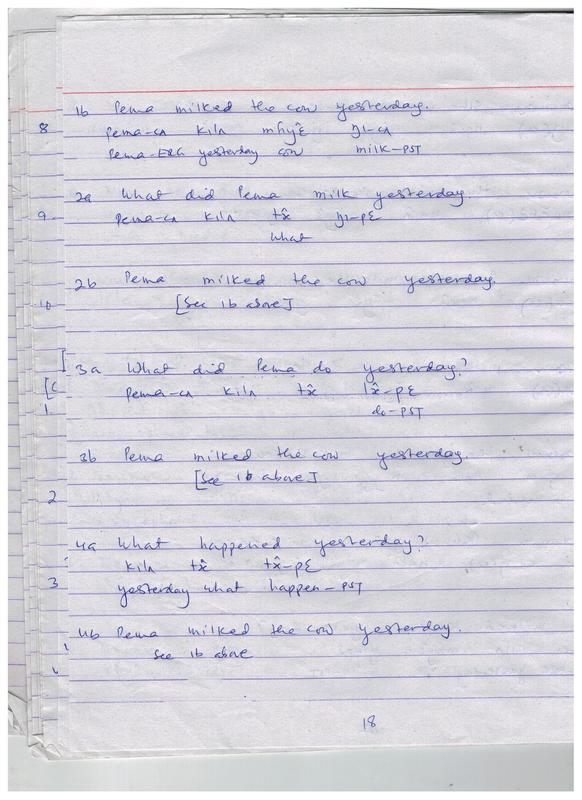 1b Pema milked the cow yesterday.
8 Pema-cʌ kilʌ mɦyɛ̂ ŋı-cʌ
Pema-ERG yesterday cow milk-PST
2a What did Pema milk yesterday
9 Pema-cʌ kilʌ tx̂ ŋı-pɛ
what
2b Pema milked the cow yesterday.
10 [See 1b above]
3a What did Pema do yesterday?
Pema-cʌ kilʌ tx̂ lx̂-pɛ
1 do-PST
3b Pema milked the cow yesterday.
[See 1b above]
2
4a What happened yesterday?
kilʌ tx̂ tx̂-pɛ
3 yesterday what happen-PST
4b Pema milked the cow yesterday.
See 1b above
18